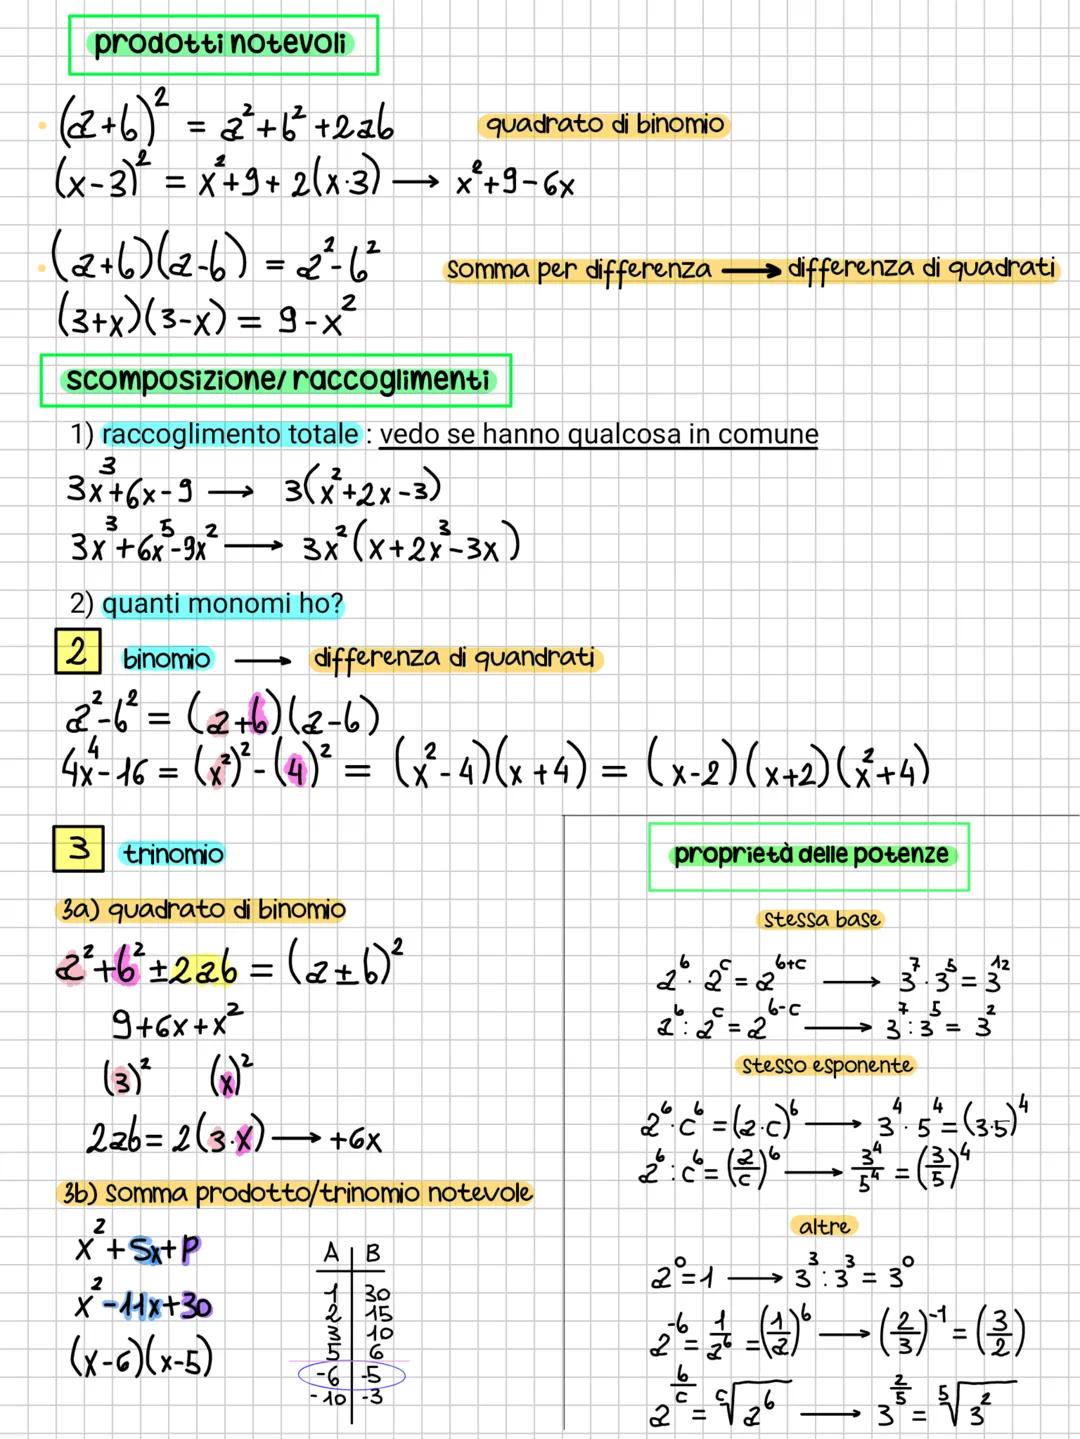 prodotti notevoli
(a+b)² = a²+b²+2ab quadrato di binomio
(x-3)² = x²+9+2(x·3) → x²+9-6x
(a+b)(a-b) = a²-b² somma per differenza → differenza di quadrati
(3+x)(3-x) = 9-x²
scomposizione/raccoglimenti
1) raccoglimento totale : vedo se hanno qualcosa in comune
3x³+6x-9 → 3(x²+2x-3)
3x³+6x⁵-9x² → 3x²(x+2x³-3x)
2) quanti monomi ho?
2 binomio → differenza di quandrati
a²-b² = (a+b)(a-b)
4x⁴-16 = (x²)²-(4)² = (x²-4)(x+4) = (x-2)(x+2)(x²+4)
3 trinomio
3a) quadrato di binomio
a²+b²±2ab = (a±b)²
9+6x+x²
(3)² (x)²
2ab = 2(3·x) → +6x
3b) somma prodotto/trinomio notevole
x²+Sx+P
x²-11x+30
(x-6)(x-5)
A | B
1 | 30
2 | 15
3 | 10
5 | 6
-6 | -5
-10 | -3
proprietà delle potenze
stessa base
aᵇ·aᶜ = aᵇ⁺ᶜ → 3⁷·3⁵ = 3¹²
aᵇ:aᶜ = aᵇ⁻ᶜ → 3⁷:3⁵ = 3²
stesso esponente
aᵇ·cᵇ = (a·c)ᵇ → 3⁴·5⁴ = (3·5)⁴
aᵇ:cᵇ = (a/c)ᵇ → 3⁴/5⁴ = (3/5)⁴
altre
a⁰=1 → 3³:3³ = 3⁰
a⁻ᵇ = 1/aᵇ = (1/a)ᵇ → (2/3)⁻¹ = (3/2)
a^(b/c) = ᶜ√aᵇ → 3^(2/5) = ⁵√3²